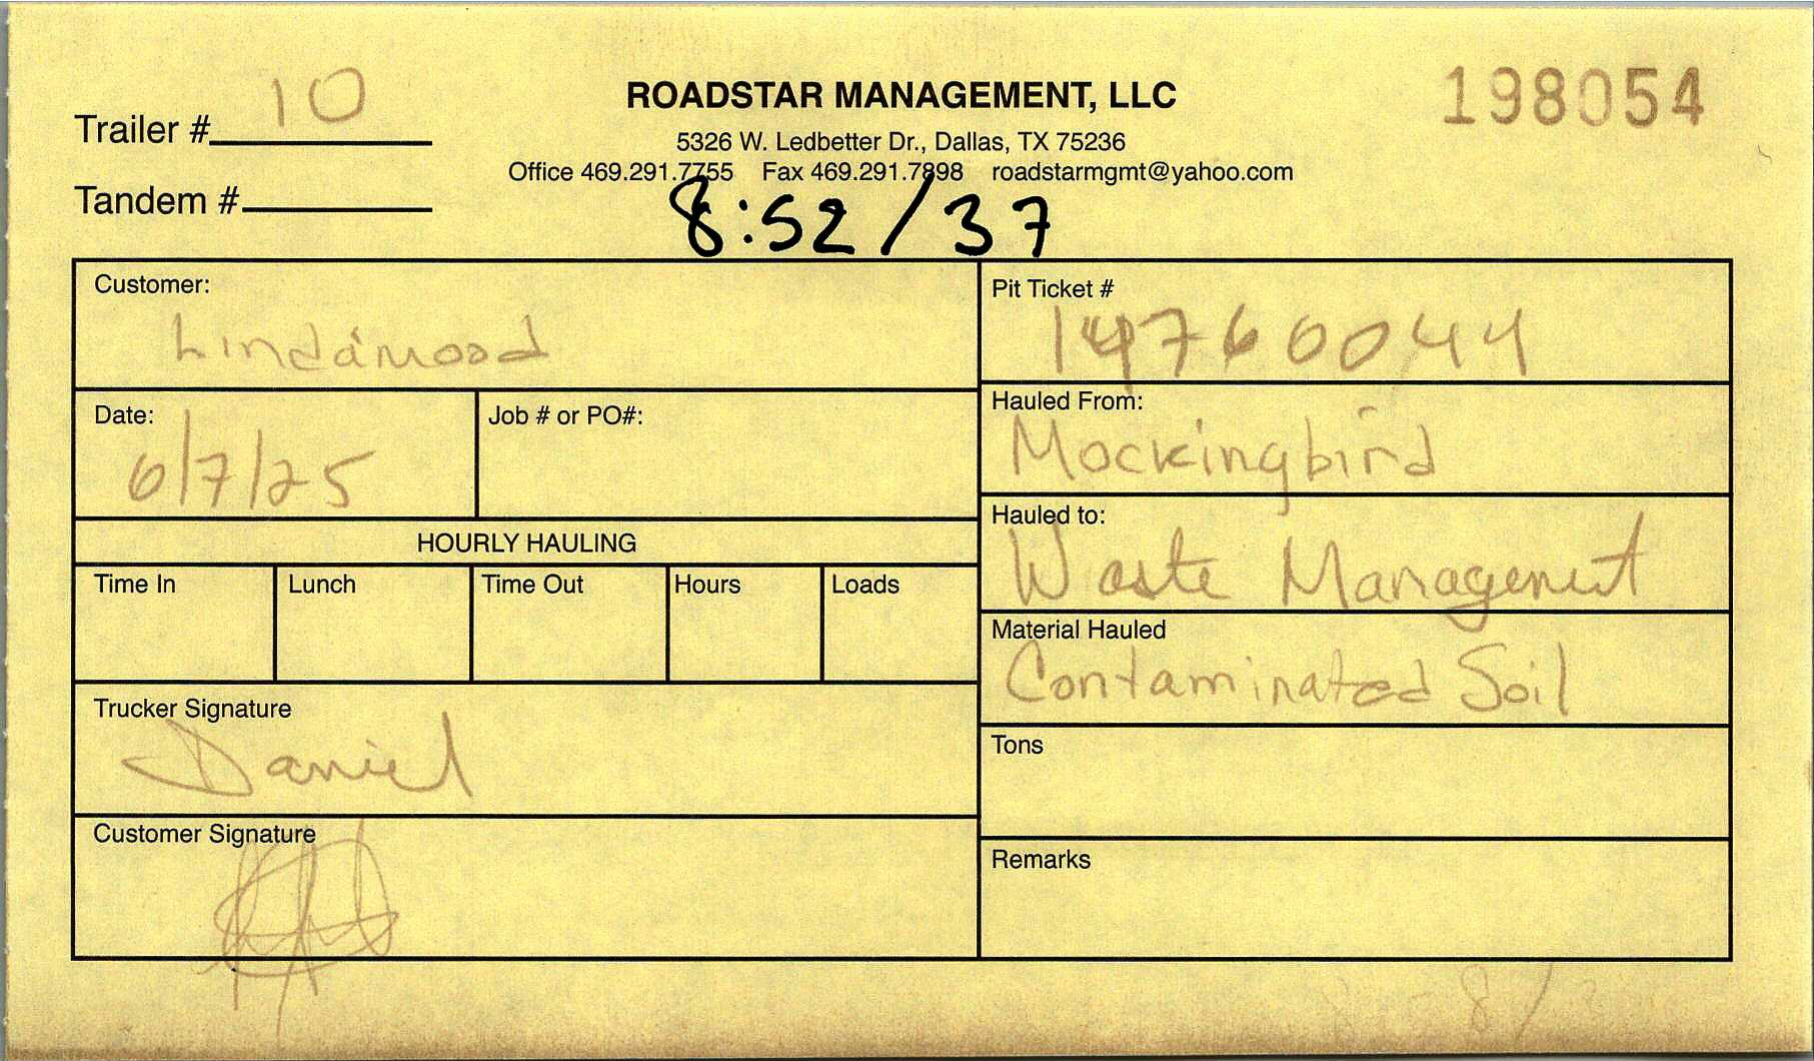 Trailer # 10
ROADSTAR MANAGEMENT, LLC
198054
5326 W. Ledbetter Dr., Dallas, TX 75236
Office 469.291.7755 Fax 469.291.7898 roadstarmgmt@yahoo.com
Tandem #
8:52 / 37
Customer:
Lindamood
Pit Ticket #
14760044
Date:
6/7/25
Job # or PO#:
Hauled From:
Mockingbird
HOURLY HAULING
Hauled to:
Waste Management
Time In Lunch Time Out Hours Loads
Material Hauled
Contaminated Soil
Trucker Signature
Daniel
Tons
Customer Signature
Remarks